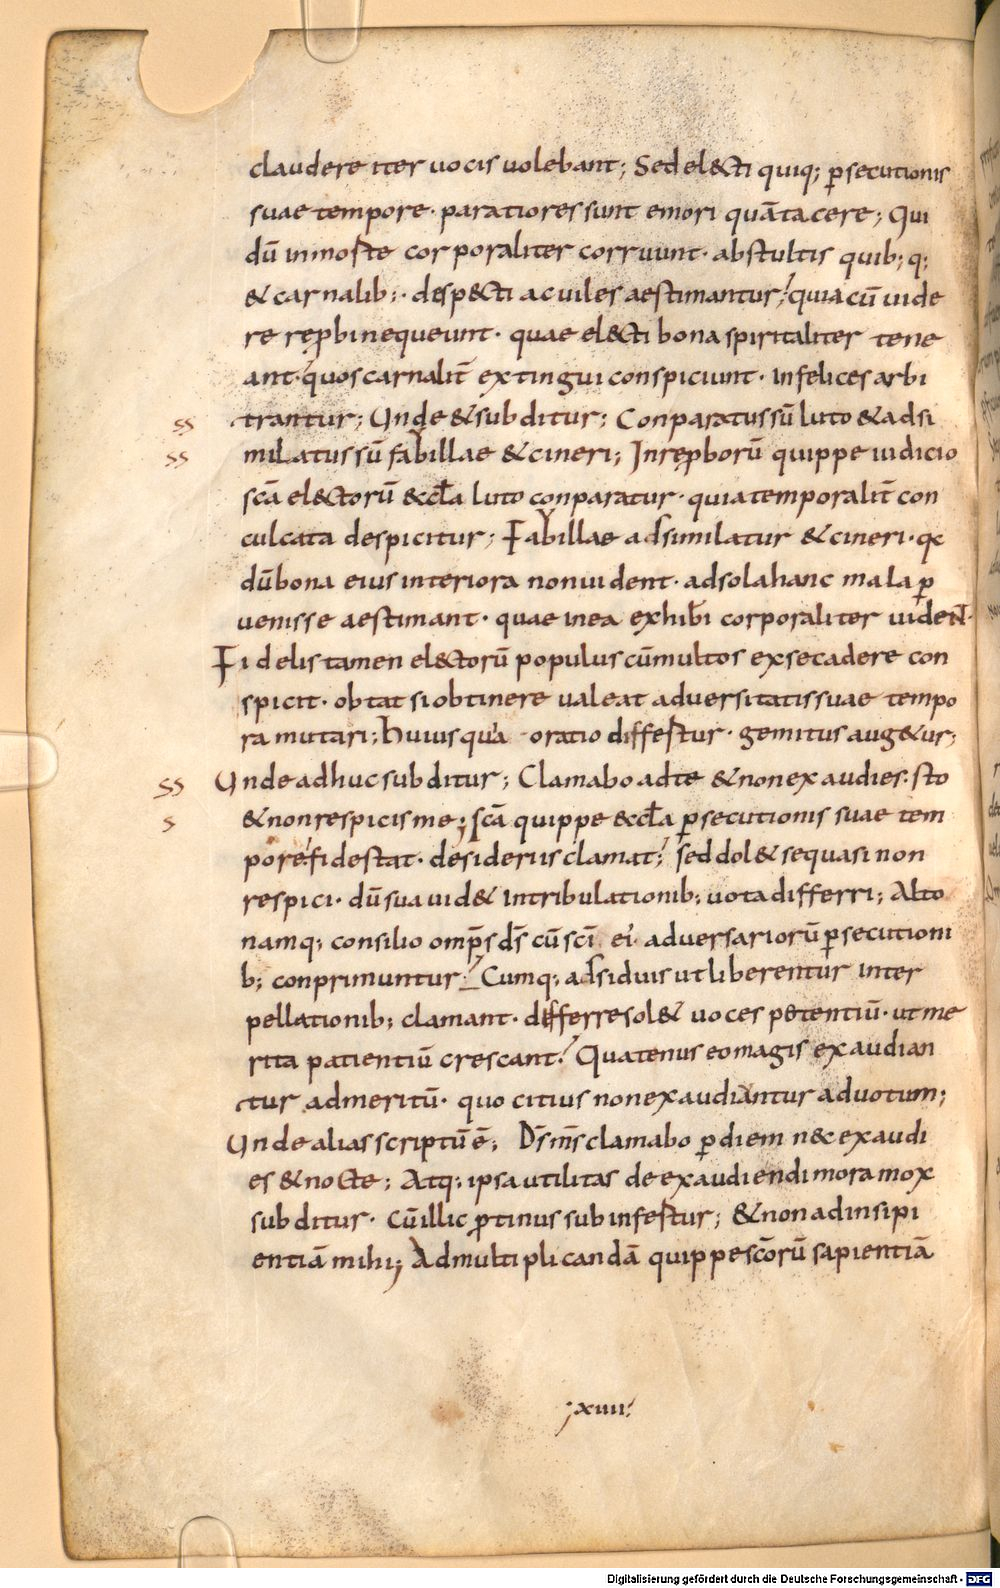 claudere iter uocis uolebant; Sed el&cti quiq; p̲secutionis
suae tempore· paratiores sunt emori quā tacere; Qui
dū in morte corporaliter corruunt· abstultis quib; q;
& carnalib;· desp&cti ac uiles aestimantur; quia cū uide
re rep̲bi nequeunt· quae el&cti bona spiritaliter tene
ant· quos carnalit̄ extingui conspiciunt· infelices arbi
ss trantur; Unde & subditur; Conparatus sū luto & adsi
ss milatus sū fabillae & cineri; In rep̲borū quippe iudicio
scā el&ctorū &ccl̄a luto conparatur· quia temporalit̄ con
culcata despicitur; Fabillae adsimilatur & cineri· qc
dū bona eius interiora non uident· ad sola hanc mala p̲
uenisse aestimant· quae in ea exhib̄i corporaliter uident·
Fidelis tamen el&ctorū populus cū multos ex se cadere con
spicit· obtat si obtinere ualeat aduersitatis suae tempo
ra mutari; huius qua oratio differtur· gemitus aug&ur;
ss Unde adhuc subditur; Clamabo ad te & non exaudies· sto
s & non respicis me; scā quippe &ccl̄a p̲secutionis suae tem
pore fide stat· desideriis clamat; sed dol& se quasi non
respici· dū sua uid& in tribulationib; uota differri; Alto
namq; consilio omp̄s d̄s cū sc̄i ei aduersariorū p̲secutioni
b; conprimuntur; Cumq; adsiduis ut liberentur inter
pellationib; clamant· differre sol& uoces petentiū· ut me
rita patientiū crescant; Quatenus eo magis exaudian
tur ad meritū· quo citius non exaudiantur ad uotum;
Unde alias scriptū ē; D̄s m̄s clamabo p̲ diem n&c exaudi
es & nocte; Atq; ipsa utilitas de exaudiendi mora mox
subditur· Cū illic p̲tinus subinfertur; & non ad insipi
entiā mihi; Ad multiplicandā quippe sc̄orū sapientiā
;xiiii;
Digitalisierung gefördert durch die Deutsche Forschungsgemeinschaft - DFG